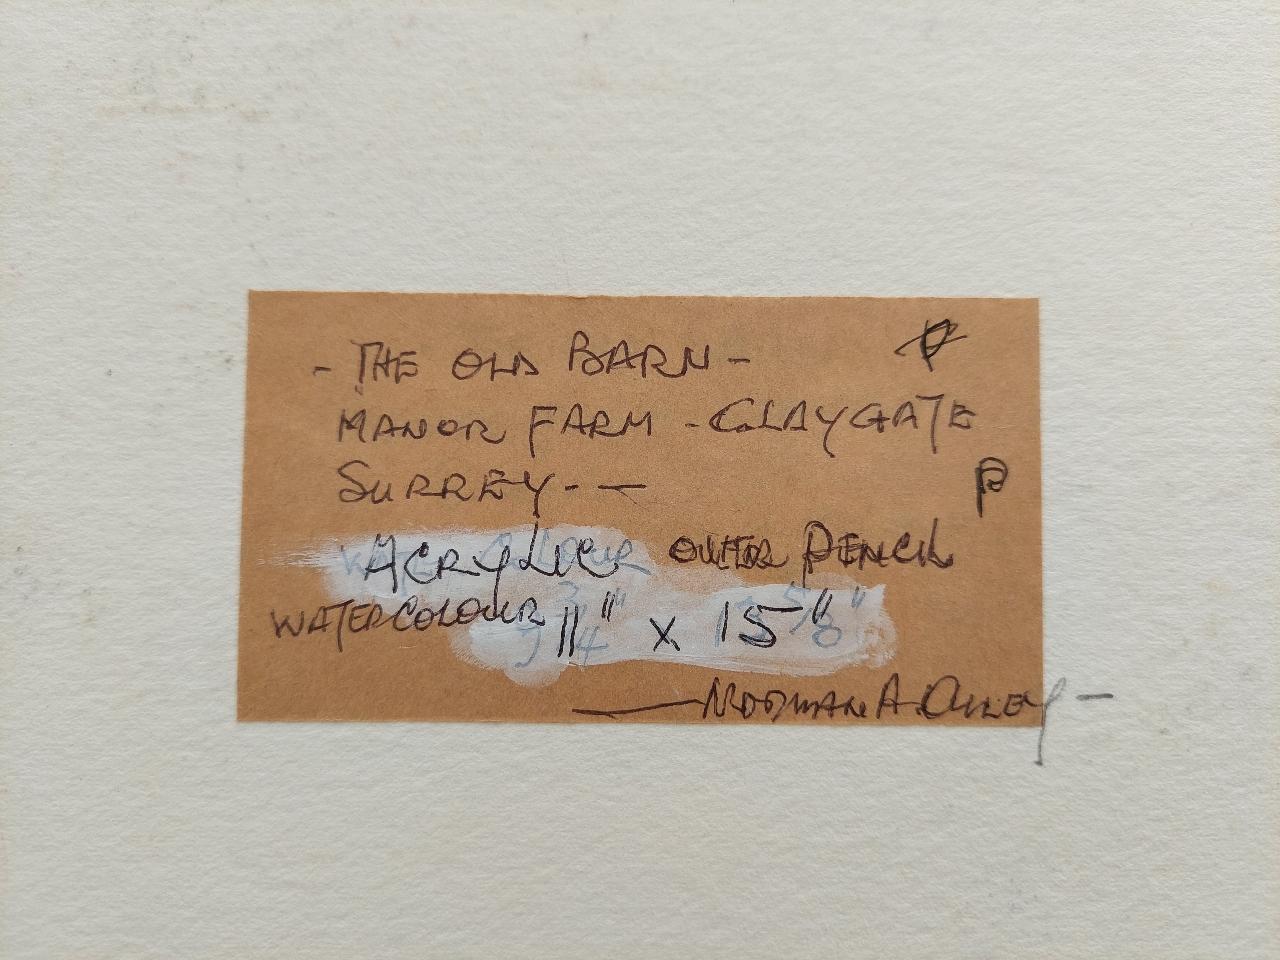 - THE OLD BARN -
MANOR FARM - CLAYGATE
SURREY - —
ACRYLIC OVER PENCIL
WATERCOLOUR 11" x 15"
— NORMAN A. OLLEY —